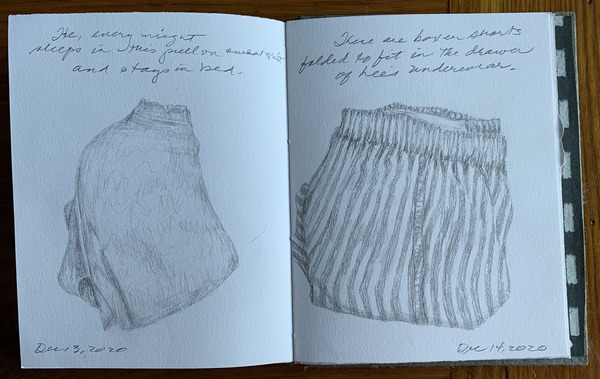 He, every night
sleeps in this pull on sweatshirt
and stays in bed.
Dec 13, 2020
These are boxer shorts
folded to fit in the drawer
of Lees underwear.
Dec 14, 2020